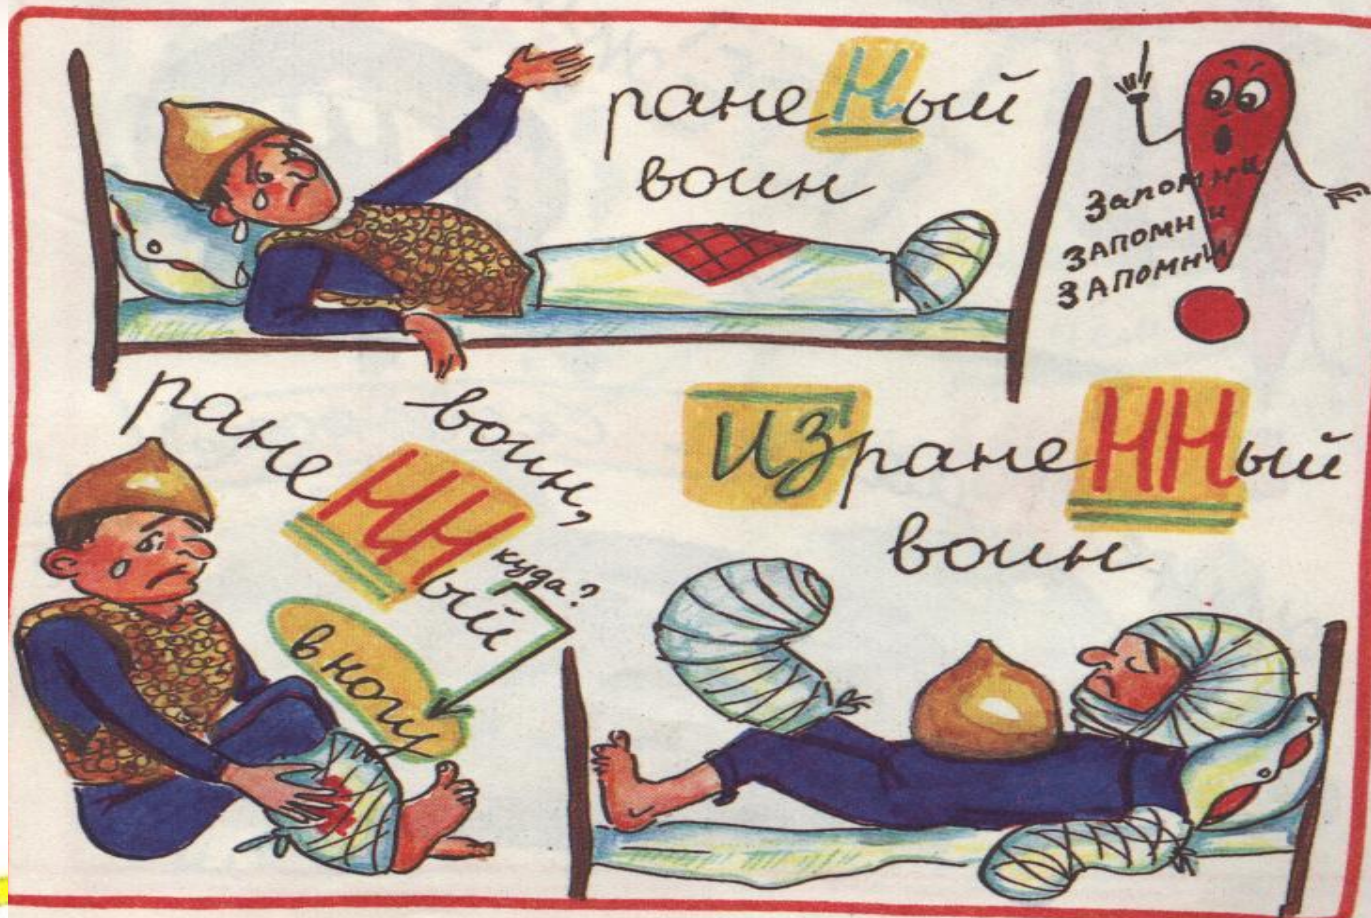 ранеНый
воин
Запомни
ЗАПОМНИ
ЗАПОМНИ
ранеННый воин,
куда?
в ногу
ИЗранеННый
воин